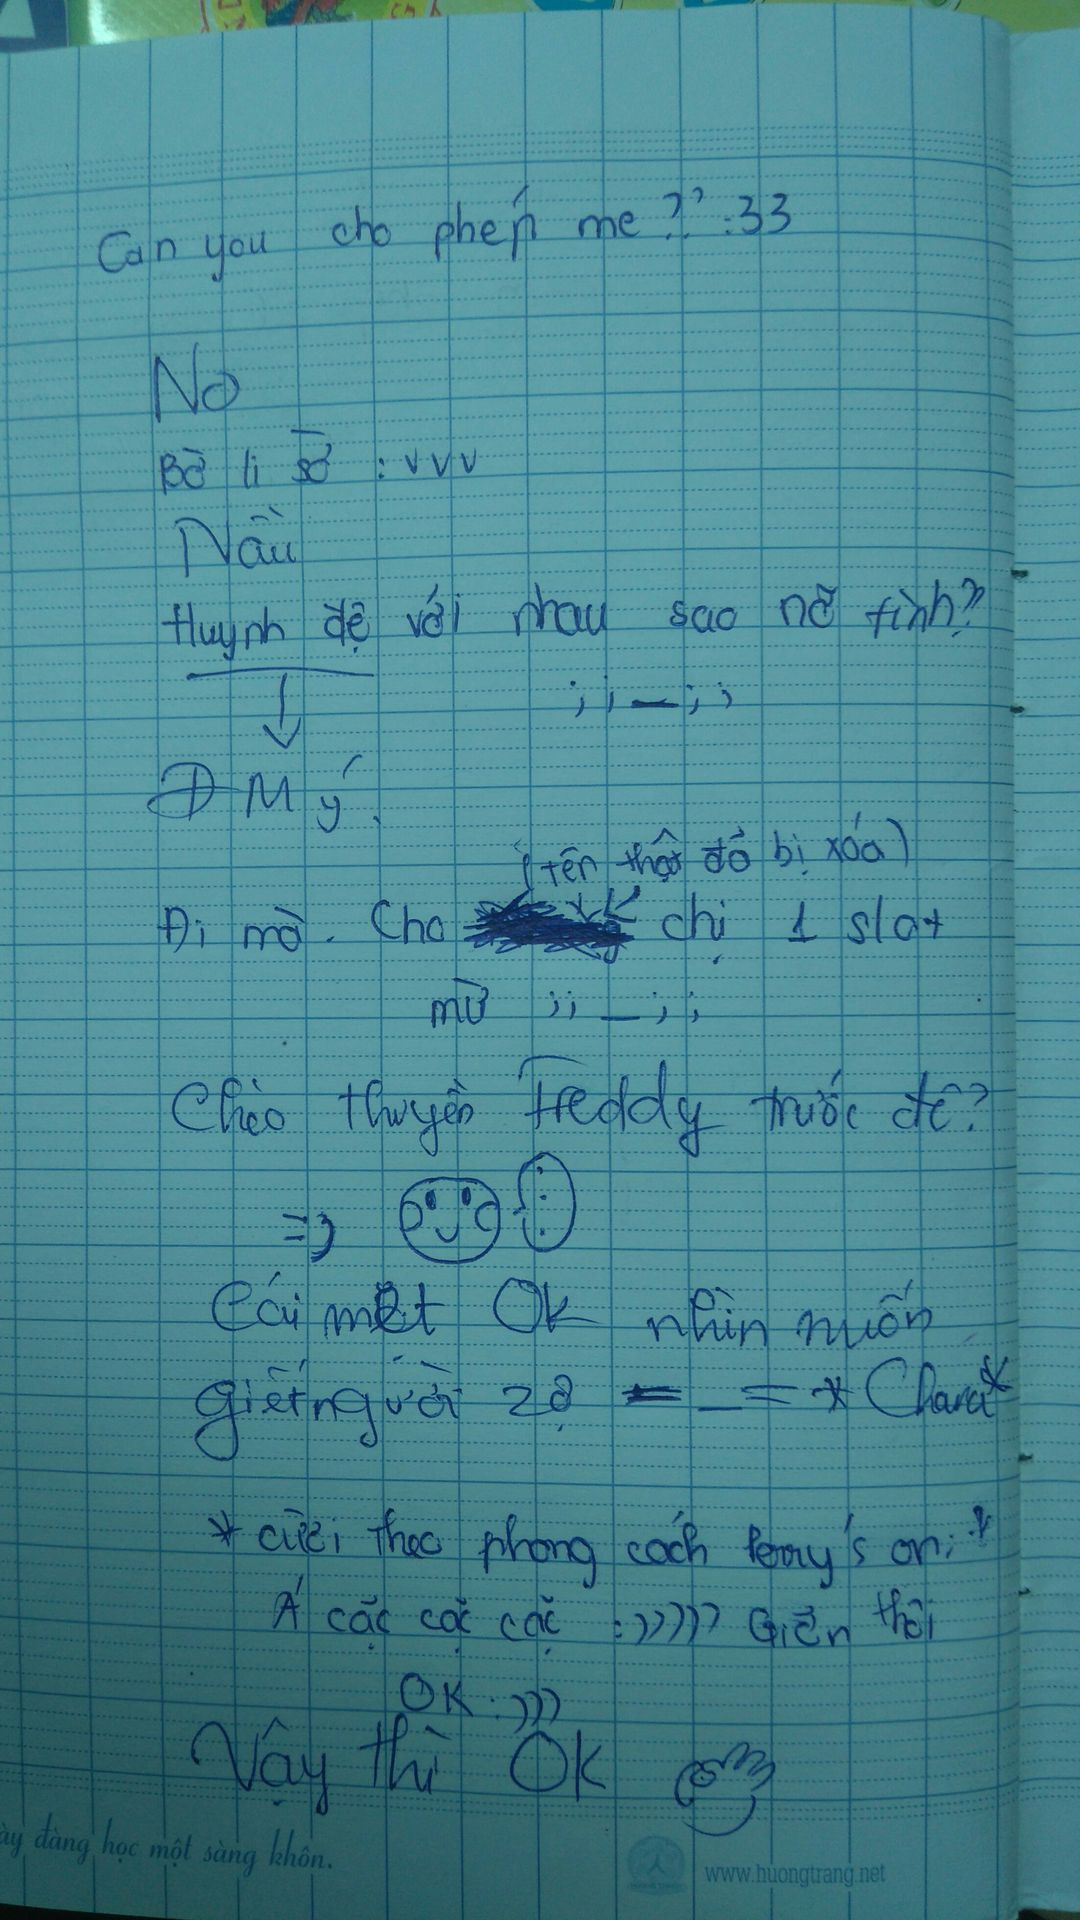 Can you cho phép me?? :33
No
Bờ li sờ :vvv
Nâu
Huynh đệ với nhau sao nỡ tình?
;;_;;
Đ M ý.
(tên thật đã bị xóa)
Đi mà. Cho chị 1 slot
mừ ;;_;;
Chèo thuyền Freddy trước đê?
=))
Cái mặt OK nhìn muốn
giết người zậ =_= *Chara*
* cười theo phong cách 's on; *
Á cặc cặc cặc :))))) Giỡn thôi
OK :)))
Vậy thì OK
ày đàng học một sàng khôn.
www.huongtrang.net